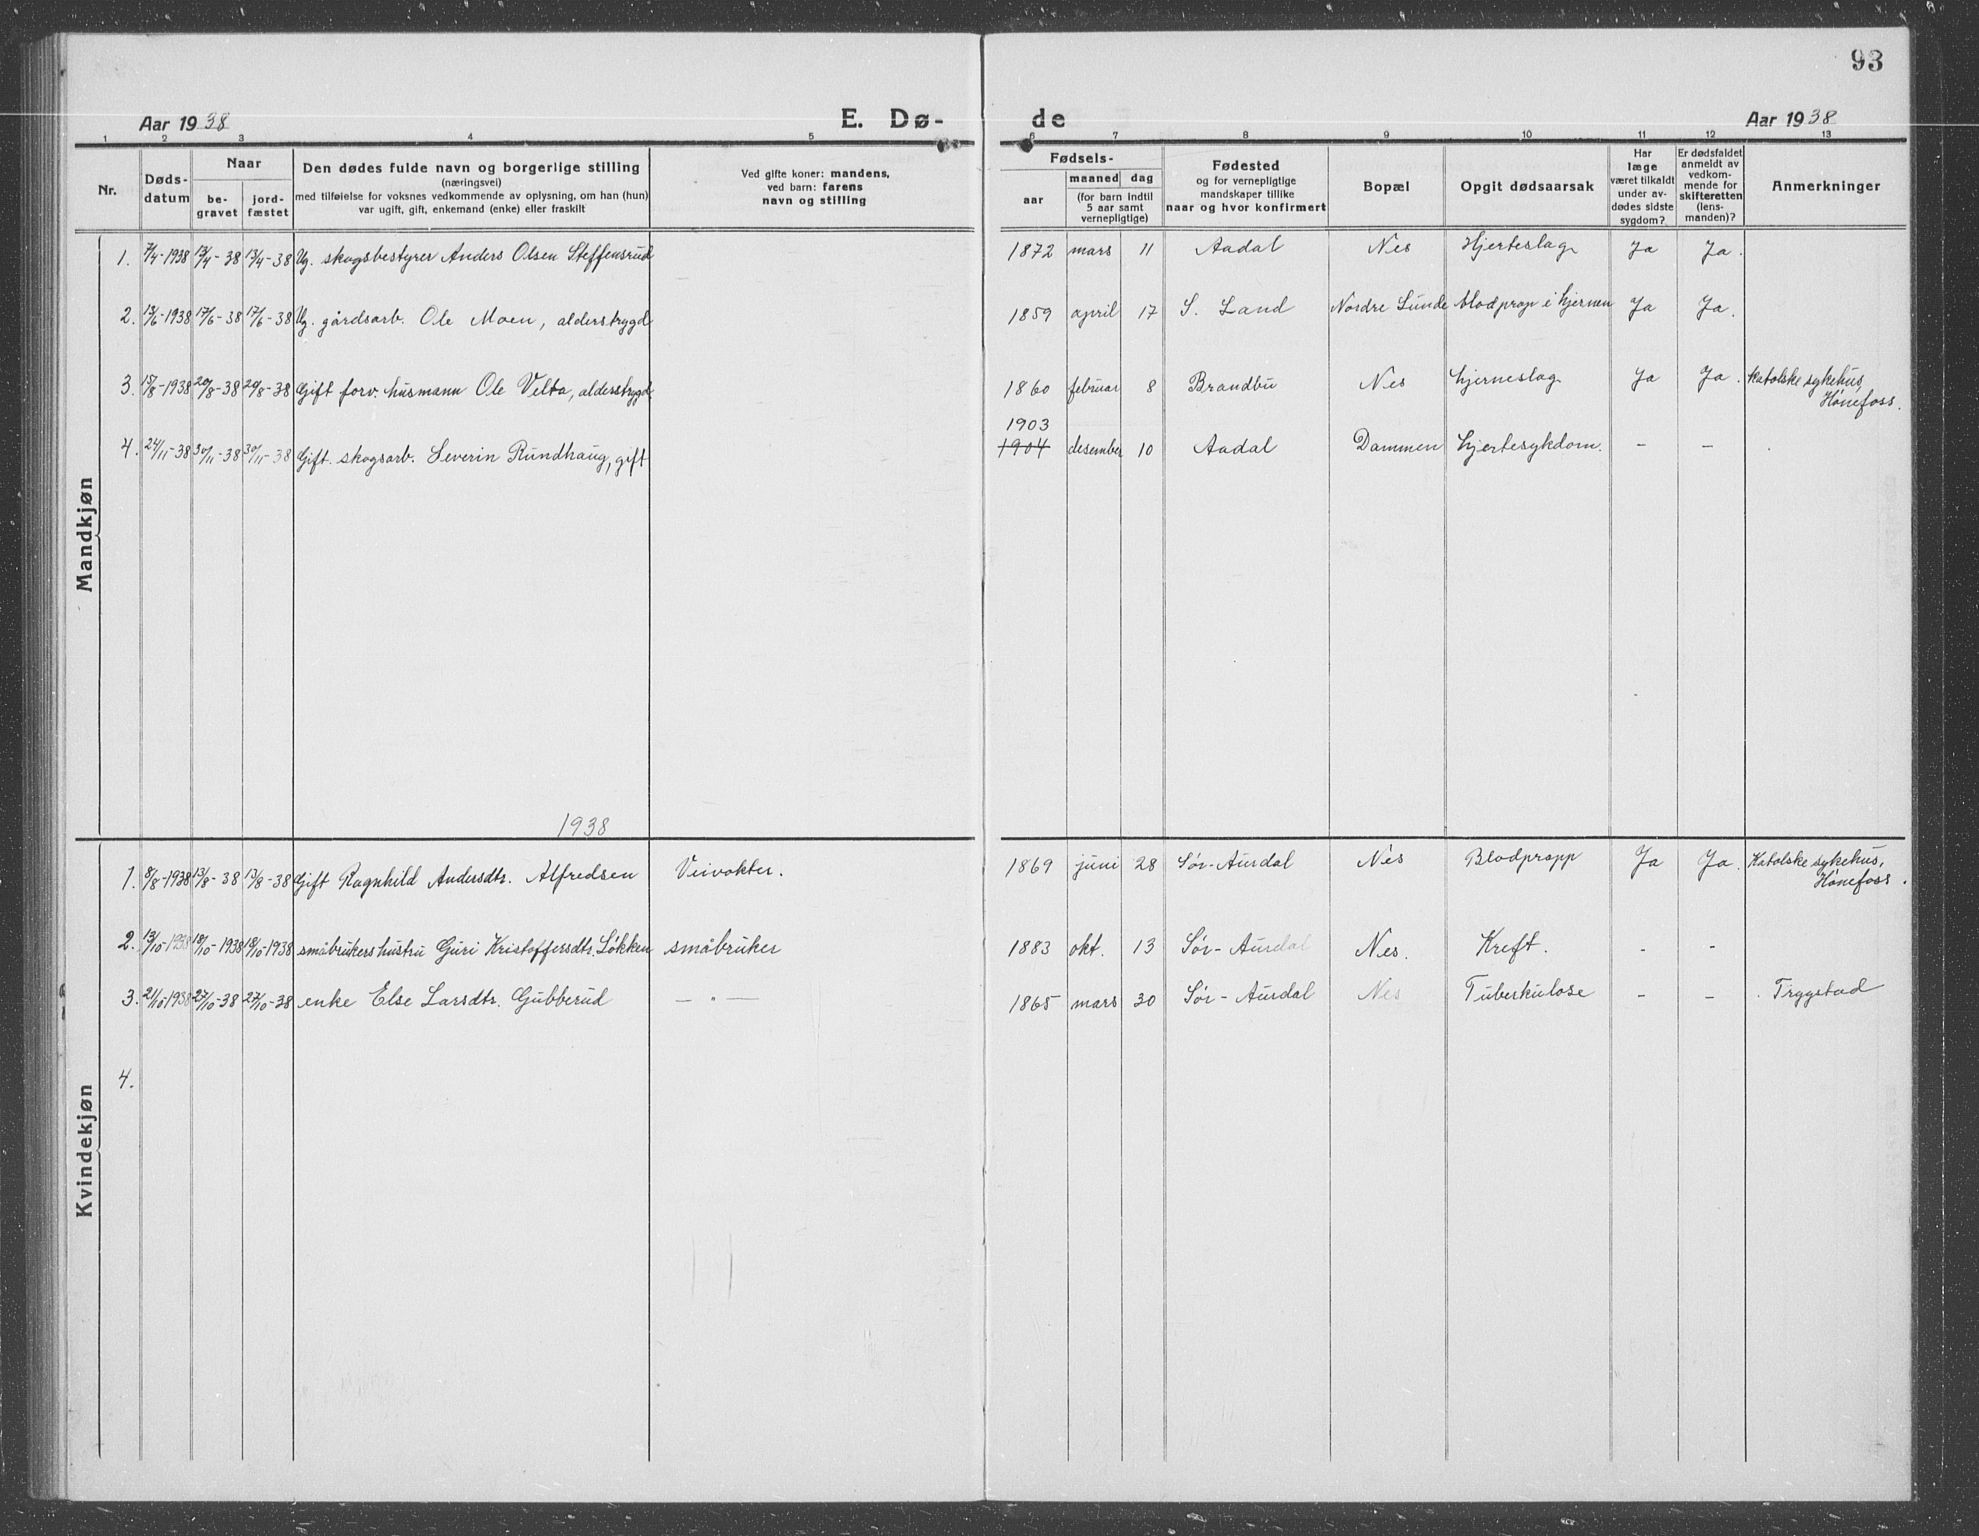 93
Aar 1938 E. Dø- de Aar 1938
1 2 3 4 5 6 7 8 9 10 11 12 13
Nr. Døds-datum Naar be-gravet jord-fæstet Den dødes fulde navn og borgerlige stilling (næringsvei) med tilføielse for voksnes vedkommende av oplysning, om han (hun) var ugift, gift, enkemand (enke) eller fraskilt Ved gifte koner: mandens, ved barn: farens navn og stilling Fødsels- aar maaned dag (for barn indtil 5 aar samt vernepligtige) Fødested og for vernepligtige mandskaper tillike naar og hvor konfirmert Bopæl Opgit dødsaarsak Har læge været tilkaldt under av-dødes sidste sygdom? Er dødsfaldet anmeldt av vedkom-mende for skifteretten (lens-manden)? Anmerkninger
Mandkjøn
1. 7/4-1938 13/4-38 13/4-38 Ug. skogsbestyrer Anders Olsen Steffensrud 1872 mars 11 Aadal Nes Hjerteslag Ja Ja.
2. 13/6-1938 17/6-38 17/6-38 Ug. gårdsarb. Ole Moen, alderstrygd 1859 april 17 S. Land Nordre Lunde blodprop i hjernen Ja Ja.
3. 15/8-1938 20/8-38 20/8-38 Gift forv. husmann Ole Velta, alderstrygd 1860 februar 8 Brandbu Nes hjerneslag Ja Ja. Katolske sykehus,
Hønefoss.
1903
4. 24/11-38 30/11-38 30/11-38 Gift. skogsarb. Severin Rundhaug, gift 1904 desember 10 Aadal Dammen hjertesykdom. - -
1938
Kvindekjøn
1. 8/8-1938 13/8-38 13/8-38 Gift Ragnhild Andersdtr. Alfredsen Veivokter. 1869 juni 28 Sør-Aurdal Nes Blodpropp Ja Ja. Katolske sykehus,
Hønefoss.
2. 13/10-1938 18/10-1938 18/10-1938 småbrukers hustru Guri Kristoffersdtr. Løkken småbruker 1883 okt. 13 Sør-Aurdal Nes. Kreft. - -
3. 21/10 1938 27/10-38 27/10-38 enke Else Larsdtr. Gubberud - " - 1865 mars 30 Sør-Aurdal Nes Tuberkulose - - . Trygstad
4.